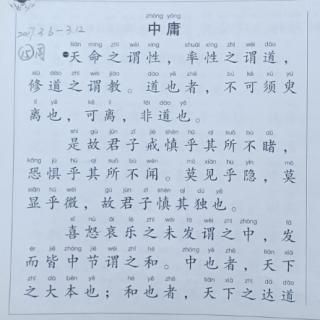 zhōng yōng
中庸
2017.3.6-3.12
⑮周
tiān mìng zhī wèi xìng shuài xìng zhī wèi dào
天命之谓性，率性之谓道，
xiū dào zhī wèi jiào dào yě zhě bù kě xū yú
修道之谓教。道也者，不可须臾
lí yě kě lí fēi dào yě
离也，可离，非道也。
shì gù jūn zǐ jiè shèn hū qí suǒ bù dǔ
是故君子戒慎乎其所不睹，
kǒng jù hū qí suǒ bù wén mò xiàn hū yǐn mò
恐惧乎其所不闻。莫见乎隐，莫
xiǎn hū wēi gù jūn zǐ shèn qí dú yě
显乎微，故君子慎其独也。
xǐ nù āi lè zhī wèi fā wèi zhī zhōng fā
喜怒哀乐之未发谓之中，发
ér jiē zhòng jié wèi zhī hé zhōng yě zhě tiān xià
而皆中节谓之和。中也者，天下
zhī dà běn yě hé yě zhě tiān xià zhī dá dào
之大本也；和也者，天下之达道